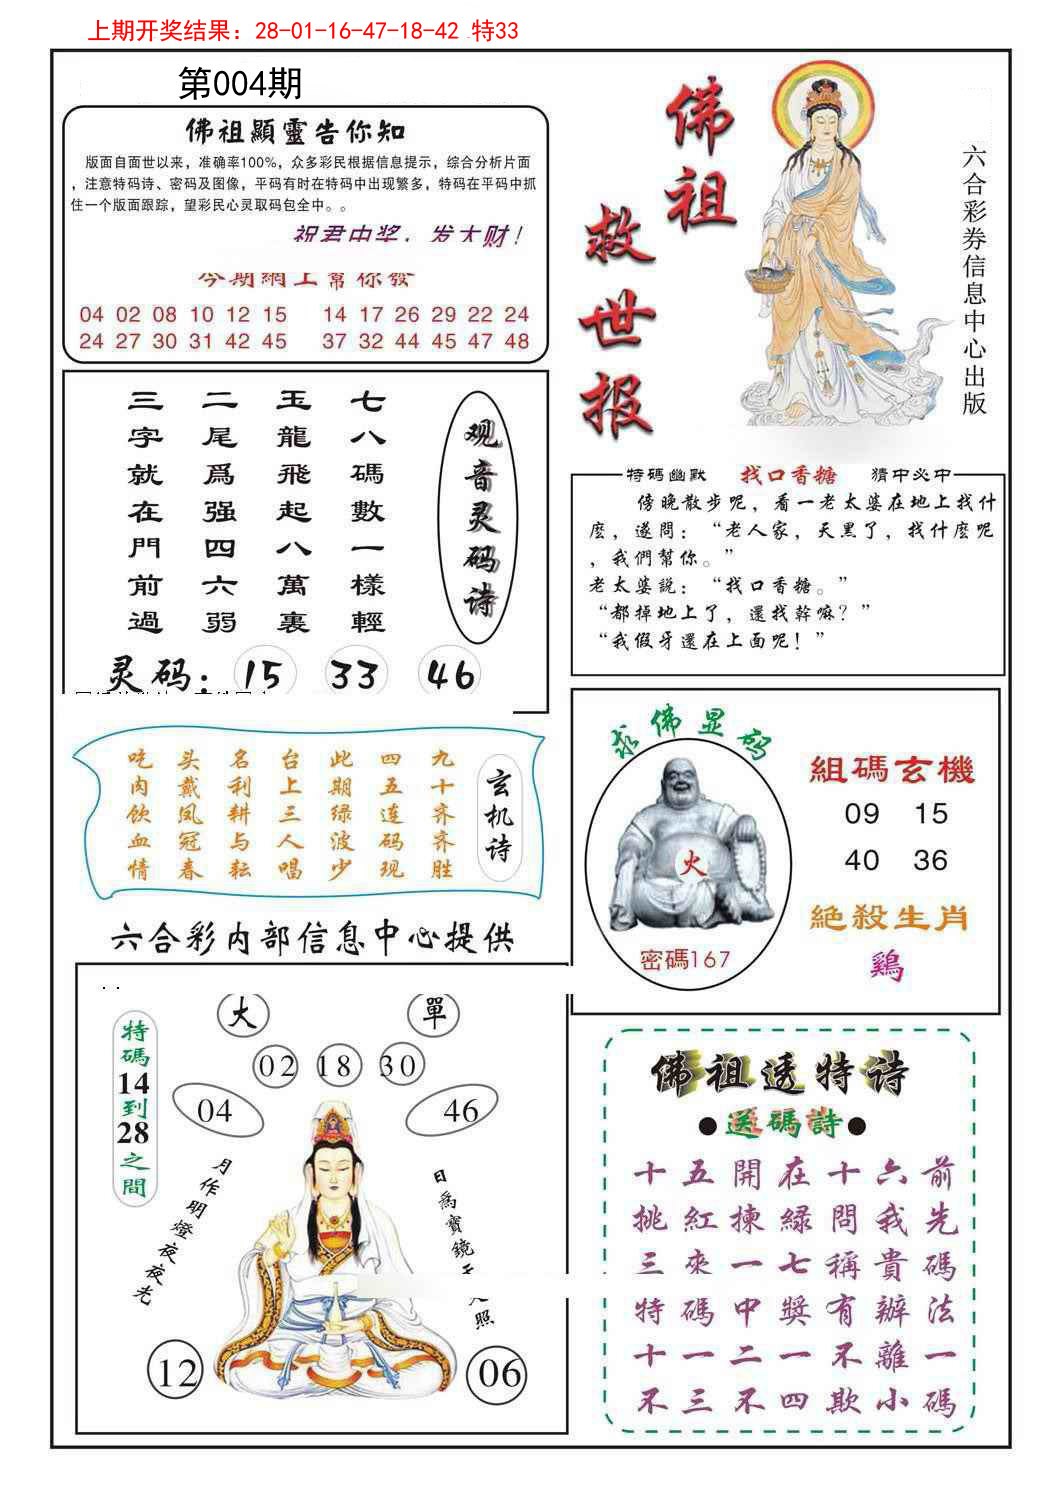 上期开奖结果：28-01-16-47-18-42 特33
第004期
佛祖顯靈告你知
版面自面世以来，准确率100%，众多彩民根据信息提示，综合分析片面
，注意特码诗、密码及图像，平码有时在特码中出现繁多，特码在平码中抓
住一个版面跟踪，望彩民心灵取码包全中。。
祝君中奖，发大财！
今期網上幫你發
04 02 08 10 12 15 14 17 26 29 22 24
24 27 30 31 42 45 37 32 44 45 47 48
佛祖救世报
六合彩券信息中心出版
观音灵码诗
七八碼數一樣輕
玉龍飛起八萬裏
二尾爲强四六弱
三字就在門前過
灵码：15 33 46
特碼幽默 找口香糖 猜中必中
傍晚散步呢，看一老太婆在地上找什
麽，遂問：“老人家，天黑了，找什麽呢
，我們幫你。”
老太婆説：“找口香糖。”
“都掉地上了，還找幹嘛？”
“我假牙還在上面呢！”
玄机诗
九十齐齐胜
四五连码现
此期绿波少
台上三人唱
名利耕与耘
头戴凤冠春
吃肉饮血情
求佛显码
火
密碼167
組碼玄機
09 15
40 36
絶殺生肖
鷄
六合彩内部信息中心提供
特碼14到28之間
大 單
02 18 30
04 46
月作明燈夜夜光
日爲寶鏡
照
12 06
佛祖透特诗
●送碼詩●
十五開在十六前
挑紅揀緑問我先
三來一七稱貴碼
特碼中獎有辦法
十一二一不離一
不三不四欺小碼